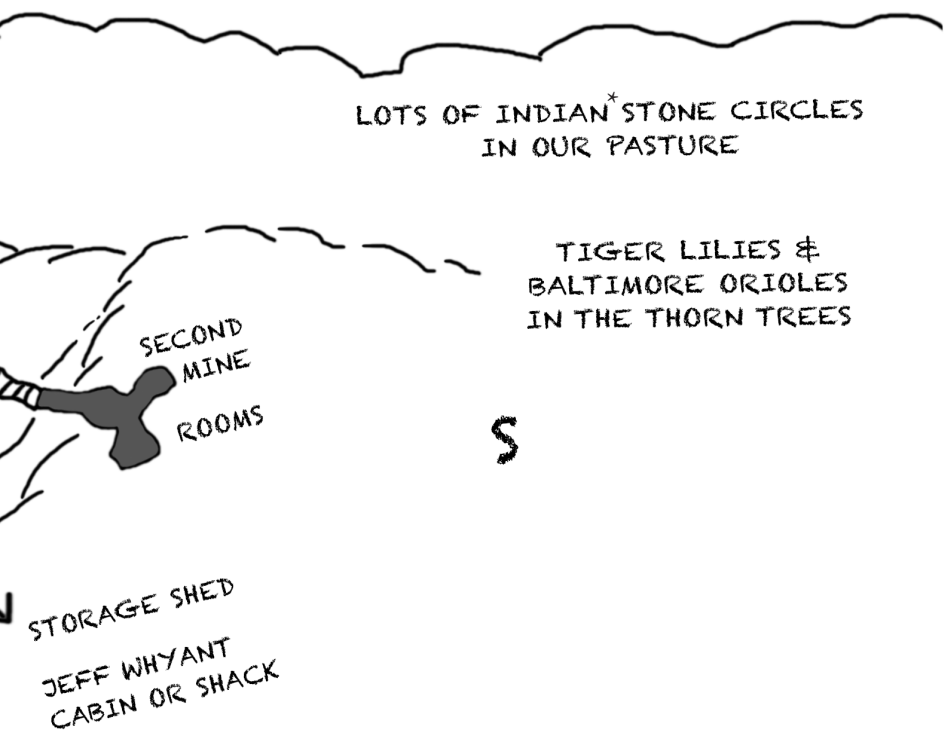 LOTS OF INDIAN* STONE CIRCLES
IN OUR PASTURE
TIGER LILIES &
BALTIMORE ORIOLES
IN THE THORN TREES
SECOND
MINE
ROOMS
S
STORAGE SHED
JEFF WHYANT
CABIN OR SHACK